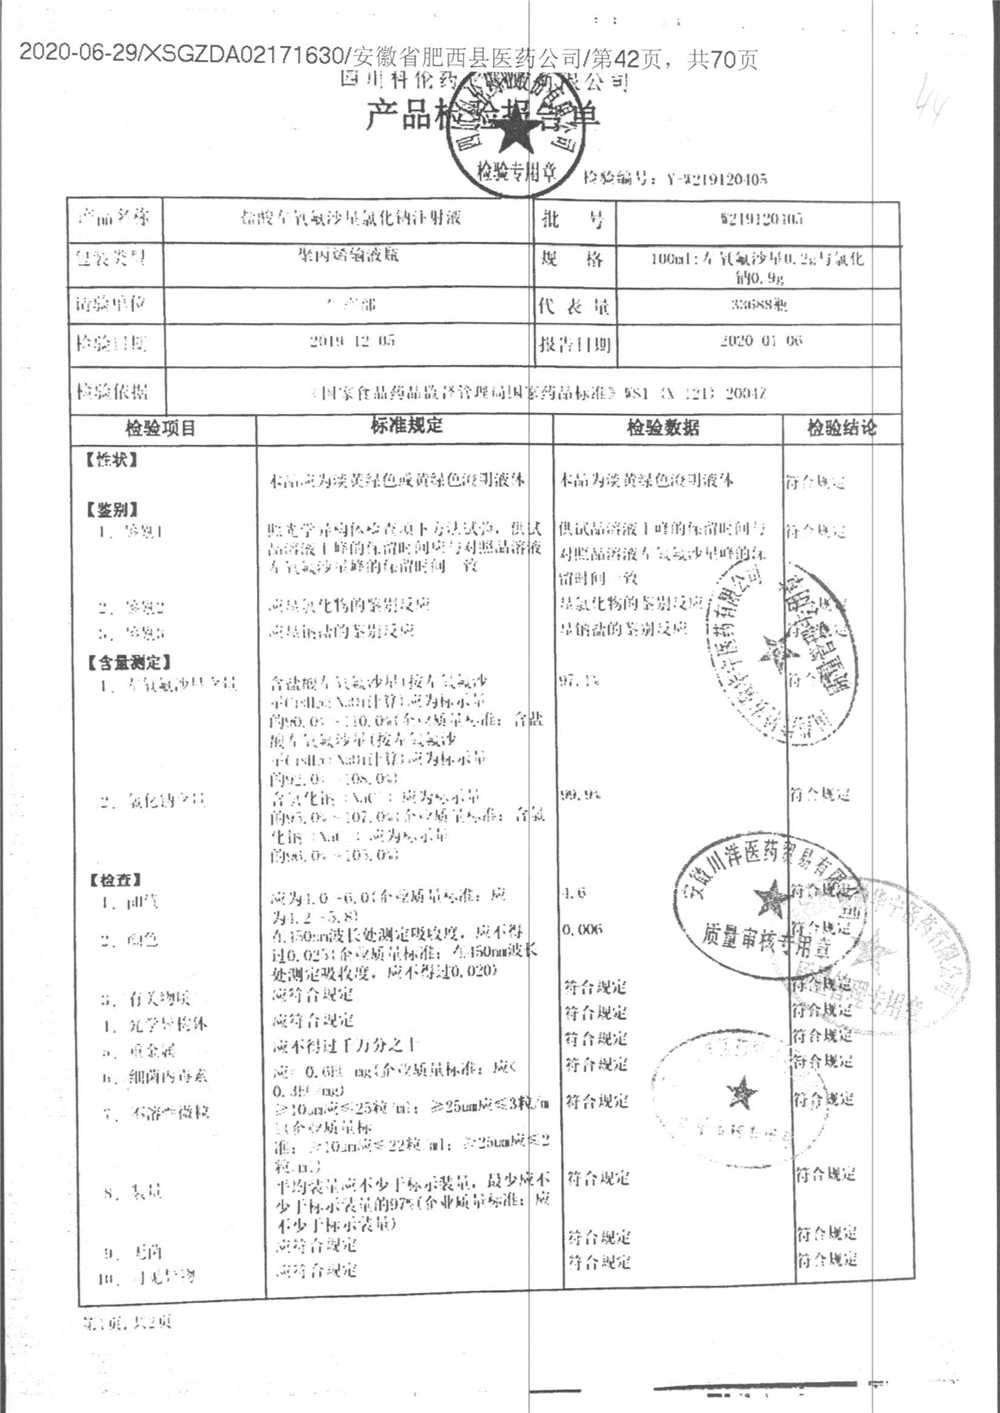 2020-06-29/XSGZDA02171630/安徽省肥西县医药公司/第42页，共70页
44
四川科伦药 限公司
产品检验报告单
四川科伦药业股份有限公司
检验专用章
检验编号：Y-W219120405
产品名称 盐酸左氧氟沙星氯化钠注射液 批 号 W219120405
包装类型 聚丙烯输液瓶 规 格 100ml:左氧氟沙星0.2g与氯化
钠0.9g
请验单位 生产部 代 表 量 33688瓶
检验日期 2019 12 05 报告日期 2020 01 06
检验依据 《国家食品药品监督管理局国家药品标准》WS1 (X 121) 2004Z
检验项目 标准规定 检验数据 检验结论
【性状】
本品应为淡黄绿色或黄绿色澄明液体 本品为淡黄绿色澄明液体 符合规定
【鉴别】
1、鉴别1 照光学异构体检查项下方法试验，供试 供试品溶液主峰的保留时间与 符合规定
品溶液主峰的保留时间应与对照品溶液 对照品溶液左氧氟沙星峰的保
左氧氟沙星峰的保留时间一致 留时间一致
2、鉴别2 应呈氯化物的鉴别反应 呈氯化物的鉴别反应 符合规定
3、鉴别3 应呈钠盐的鉴别反应 呈钠盐的鉴别反应
【含量测定】
1、左氧氟沙星含量 含盐酸左氧氟沙星(按左氧氟沙 97.1% 符合
计算)应为标示量
的90.0%~110.0%(企业质量标准：含盐
酸左氧氟沙星(按左氧氟沙
计算)应为标示量
的92.0%~108.0%)
2、氯化钠含量 含氯化钠 应为标示量 99.9% 符合规定
的95.0%~107.0%(企业质量标准：含氯
化钠 应为标示量
的96.0%~105.0%)
【检查】
1、pH值 应为4.0~6.0(企业质量标准：应 4.6 符合规定
为4.2~5.8)
2、颜色 在450nm波长处测定吸收度，应不得 0.006 符合规定
过0.025(企业质量标准：在450nm波长
处测定吸收度，应不得过0.020)
3、有关物质 应符合规定 符合规定 符合规定
4、光学异构体 应符合规定 符合规定 符合规定
5、重金属 应不得过千万分之十 符合规定 符合规定
6、细菌内毒素 应 0.6EU/mg(企业质量标准：应< 符合规定 符合规定
0.3EU/mg)
7、不溶性微粒 ≥10um应≤25粒/ml；≥25um应≤3粒/m 符合规定 符合规定
l(企业质量标
准：≥10um应≤22粒/ml；≥25um应≤2
粒/ml)
8、装量 平均装量应不少于标示装量，最少应不 符合规定 符合规定
少于标示装量的97%(企业质量标准：应
不少于标示装量)
9、无菌 应符合规定 符合规定 符合规定
10、可见异物 应符合规定 符合规定 符合规定
安徽川洋医药贸易有限公司
质量审核专用章
第1页,共2页